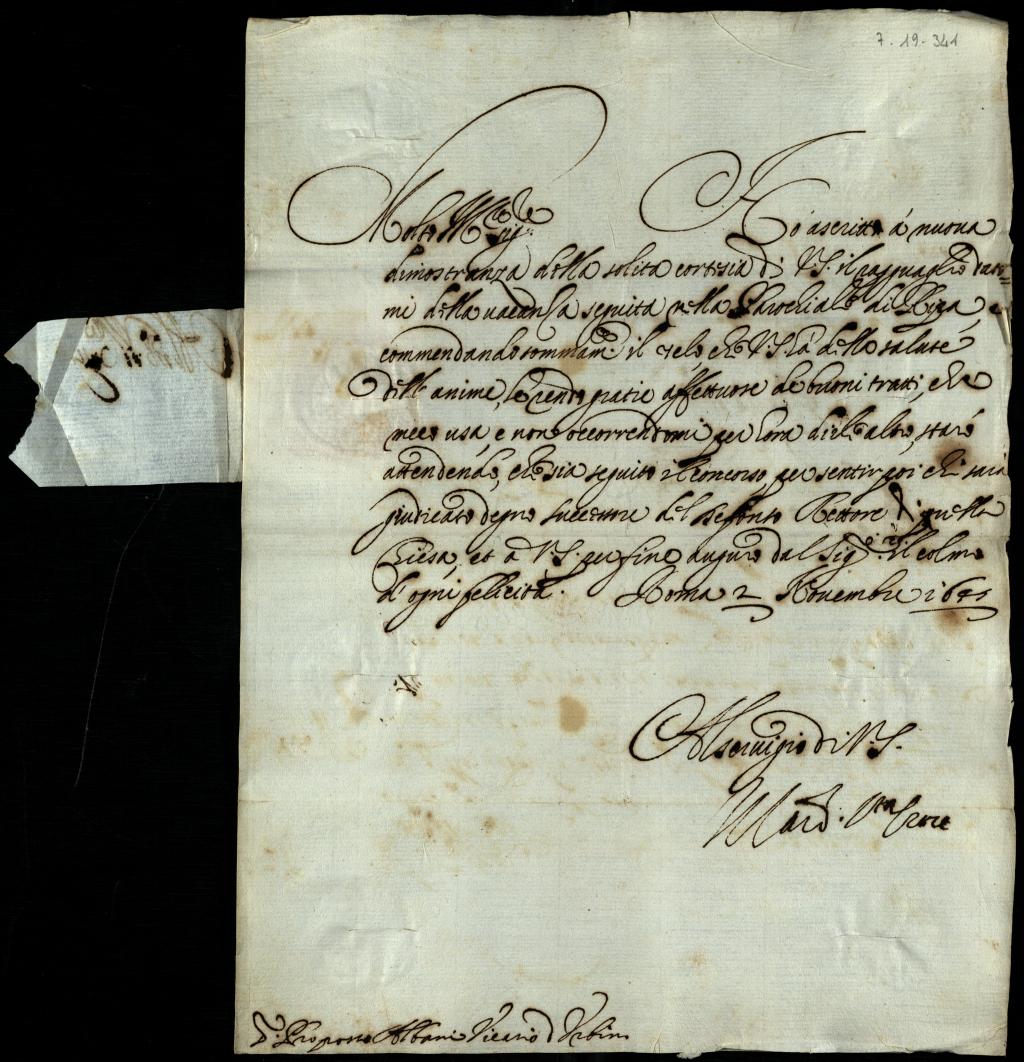 7 - 19 - 341
Molto M.co Sig.re Ho ascritto á nuoua
dimostranza della solita cortesia di V.S. il ragguaglio dato=
mi della uacanza seguita nella Parochiale di
commendando sommam.te il zelo, che V.S. há della salute
dell'anime, le rendo gratie affettuose de buoni tratti, che
meco usa, e non occorrendomi per hora dir altro, staró
attendendo, che sia seguito il concorso, per sentir poi chi sará
giudicato degno successore del deffonto Rettore di quella
Chiesa, et a V.S. per fine auguro dal Sig.re il colmo
d'ogni felicitá. Roma 2 Nouembre 164
Al seruigio di V.S.
M Card. S.ta Croce
S.r Proposto Albani Vicario d'Urbino